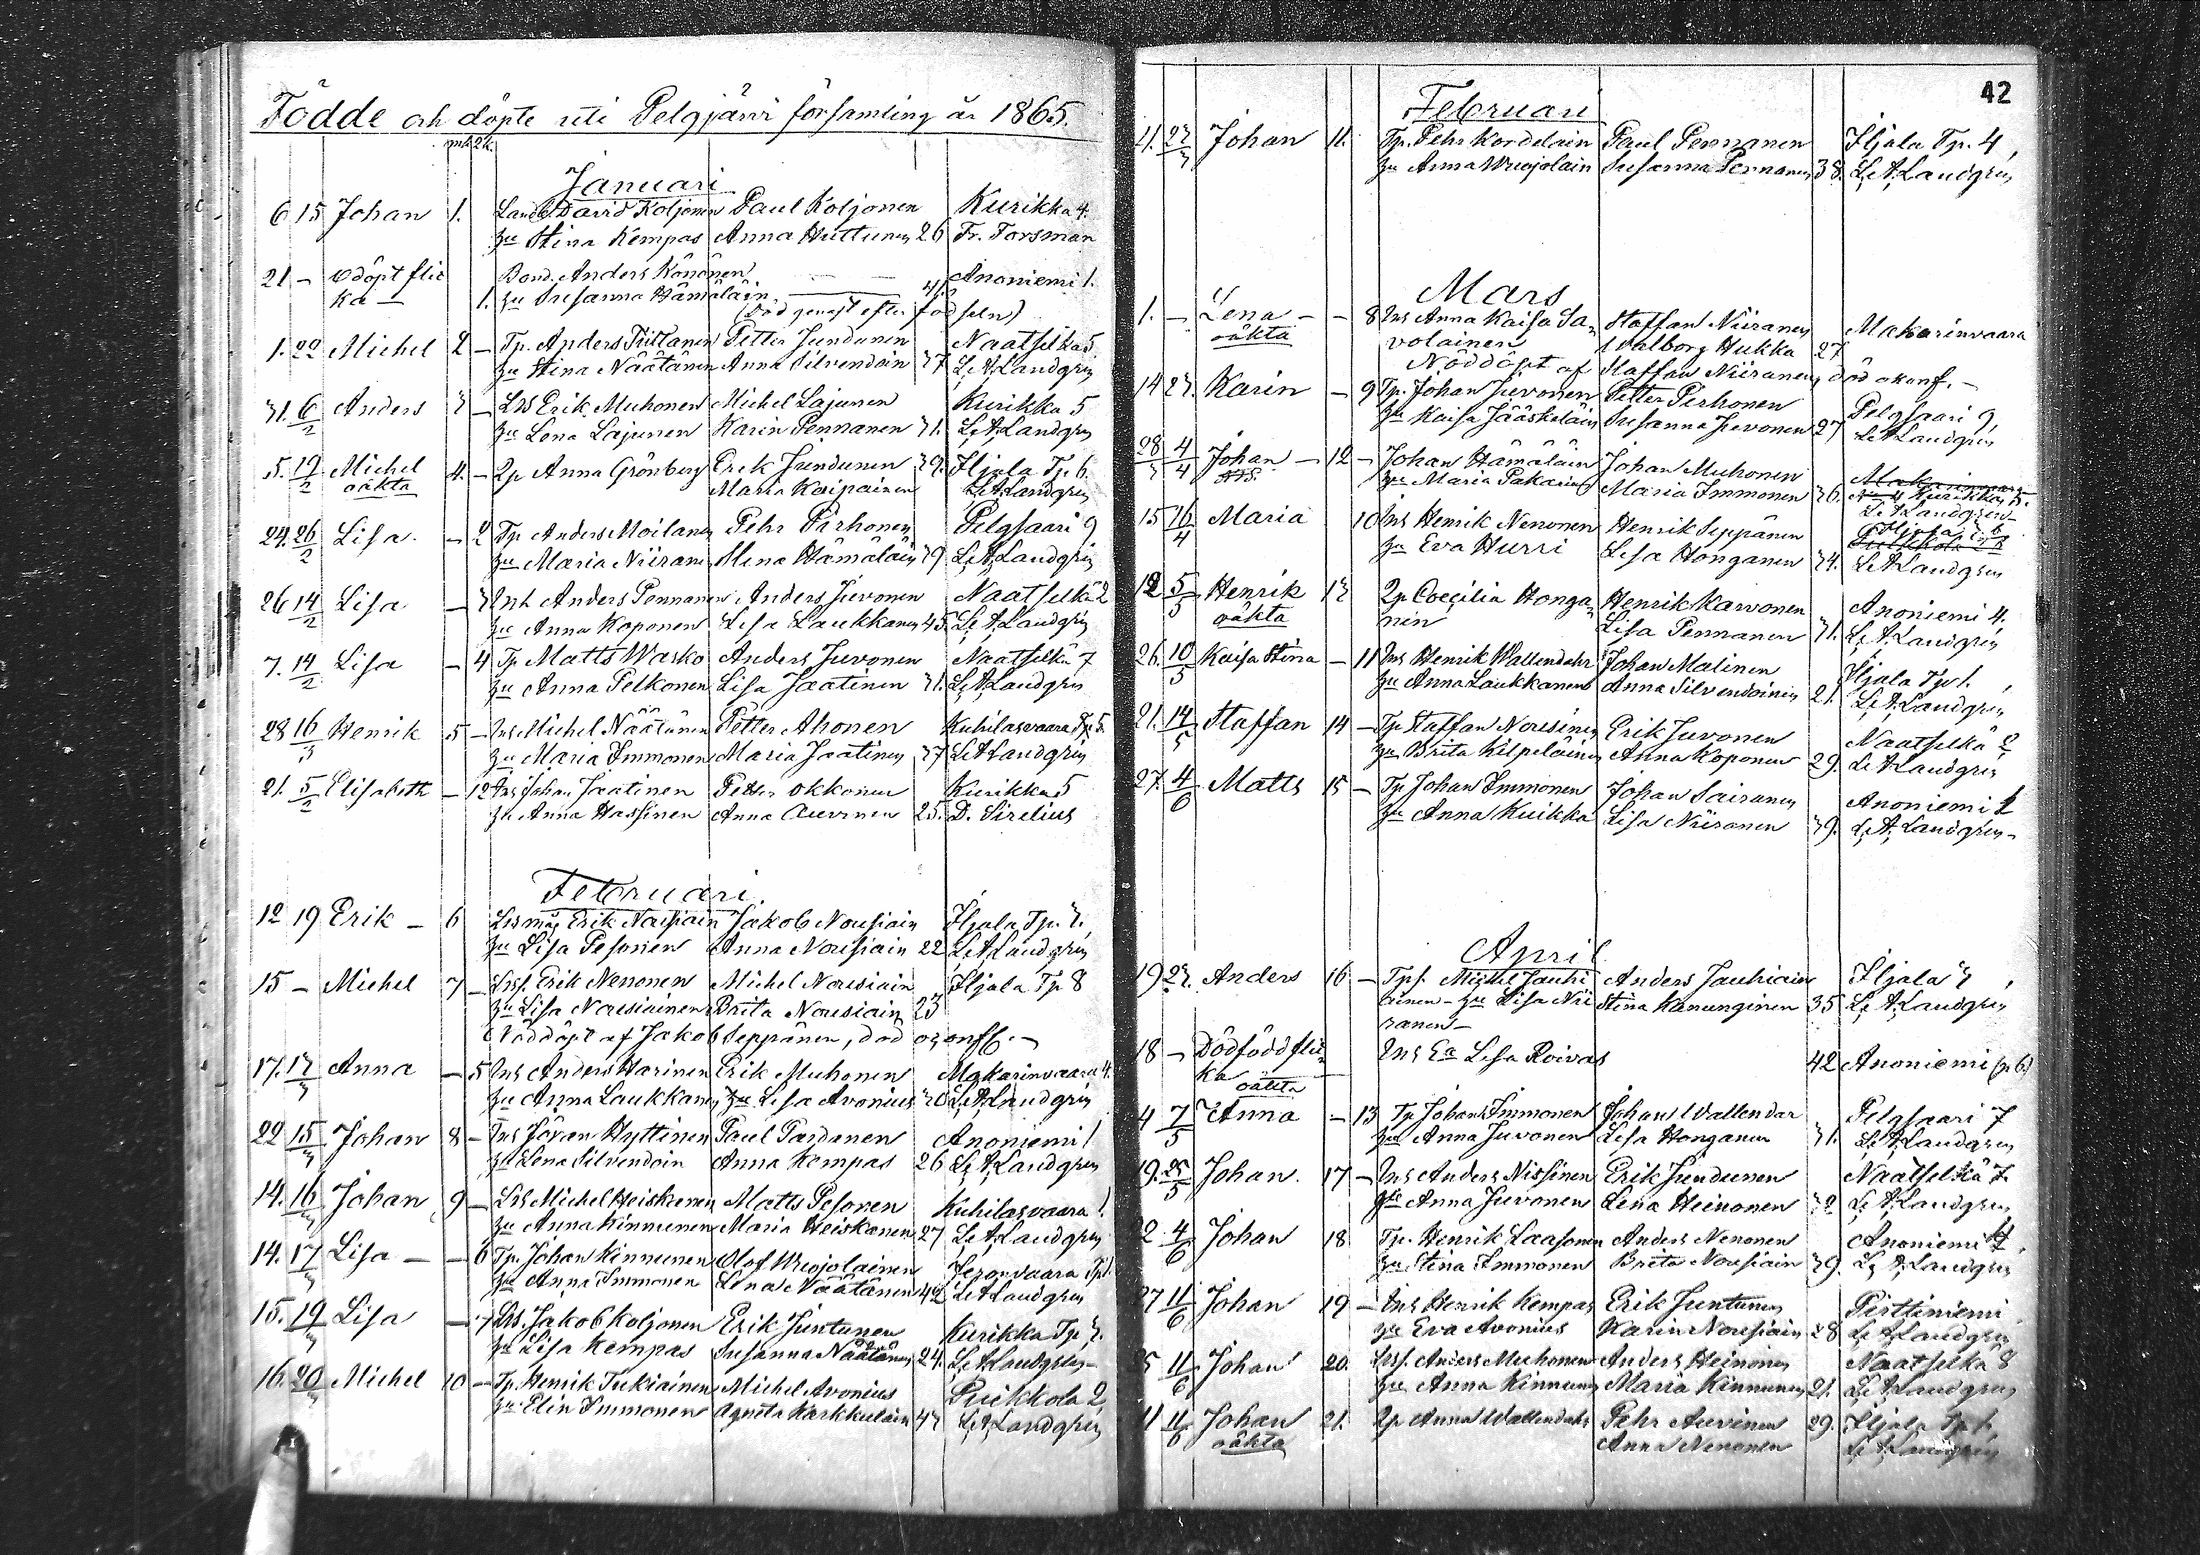 Födde och döpte uti Pelgjärvi församling år 1865.
mk. qk.
Januari
6 15 Johan 1. Landb. David Koljonen Paul Koljonen Kurikka 4.
hu Stina Kempas Anna Huttunen 26 Fr. Forsman
21 – odöpt flic Bond. Anders Könönen Anoniemi 1.
ka – 1. hu Susanna Hämäläin
(död genast efter födseln)
1. 22 Michel 2 – Tp. Anders Petter Jundunen Naatselkä 5
hu Stina Näätänen Anna Silvendoin 37 L. A. Landgren
31. 6/2 Anders 3 – Lrs Erik Muhonen Michel Lajunen Kurikka 5
hu Lena Lajunen Karin Pennanen 31. L. A. Landgren
5. 19/2 Michel 4. – Qp Anna Grönberg Erik Jundunen 39. Iljala Tp. 6.
oäkta Maria Kaipainen L. A. Landgren
24. 26/2 Lisa – 2 Tp Anders Moilanen Pehr Pirhonen Pelgsaari 9
hu Maria Niiranen Stina Hämäläin 39 L. A. Landgren
26 14/2 Lisa – 3 Inh Anders Pennanen Anders Juvonen Naatselkä 2
hu Anna Koponen Lisa Laukkanen 45. L. A. Landgren
7. 14/2 Lisa – 4 Tp Matts Wasko Anders Juvonen Naatselkä 7
hu Anna Pelkonen Lisa Jaatinen 31. L. A. Landgren
28 16/3 Henrik 5 – Inh Michel Näätänen Petter Ahonen Kuhilasvaara Tp 5.
hu Maria Immonen Maria Jaatinen 37 L. A. Landgren
21. 5/2 Elisabeth – 12 Inh Johan Jaatinen Petter Okkonen Kurikka 5
hu Anna Hassinen Anna Auvinen 25. D. Sirelius
Februari.
12 19 Erik – 6 Lrs måg Erik Jakob Nousiain Iljala Tp. 3.
hu Lisa Pesonen Anna Nousiain 22 L. A. Landgren
15 – Michel 7 – Lrs. Erik Nenonen Michel Nousiain Iljala Tp 8
hu Lisa Nousiainen Brita Nousiain 23
Nöddöpt af Jakob Seppänen, död
17. 13/3 Anna – 5 Inh Anders Harinen Erik Muhonen Makarinvaara 4.
hu Anna Laukkanen hu Lisa Avonius 30 L. A. Landgren
22 15/3 Johan 8 – Inh Jöran Hyttinen Paul Pardanen Anoniemi 1
hu Lena Silvendoin Anna Kempas 26 L. A. Landgren
14. 16/3 Johan 9 – Lrs Michel Heiskanen Matts Pesonen Kuhilasvaara 1.
hu Anna Kinnunen Maria Heiskanen 27 L. A. Landgren
14. 17/3 Lisa – – 6 Tp. Johan Kinnunen Olof Wuojolainen Jeronvaara Tp 1.
hu Anna Immonen Lena Näätänen 42 L. A. Landgren
15. 19/3 Lisa – 7 Lrs. Jakob Koljonen Erik Juntunen Kurikka Tp 3.
hu Lisa Kempas Susanna Näätänen 24. L. A. Landgren
16. 20/3 Michel 10 – Tp. Henrik Tukiainen Michel Avonius Puikkola 2
hu Elin Immonen Agneta Karkkulain 43 L. A. Landgren
42
Februari
4. 23/3 Johan 11. Tp. Pehr Kordelain Paul Pennanen Iljala Tp. 4
hu Anna Wuojolain Susanna Pennanen 38. L. A. Landgren
Mars
1. – Lena – – 8 Inh Anna Kaisa Sa- Staffan Niiranen Makarinvaara
oäkta volainen Walborg Hukka 27
Nöddöpt af Staffan Niiranen död
14 23. Karin – 9 Tp. Johan Juvonen Petter Pirhonen Pelgsaari 9
hu Kaisa Jääskeläin Susanna Juvonen 27 L. A. Landgren
28/3 4/4 Johan – 12 – Johan Hämäläin Johan Muhonen Makarinvaara
hu Maria Pakarinen Maria Immonen 36. Kurikka 5.
L. A. Landgren
15 16/4 Maria 10 Inh Henrik Nenonen Henrik Seppänen Iljala 6
hu Eva Hurri Lisa Honganen 34. L. A. Landgren
12 5/5 Henrik 13 Qp Coecilia Honga- Henrik Karvonen Anoniemi 4.
oäkta nen Lisa Pennanen 31. L. A. Landgren
26. 10/5 Kaisa Stina – 11 Inh Henrik Wallendahr Johan Malinen Iljala Tp 1.
hu Anna Laukkanen Anna Silvendoinen 21. L. A. Landgren
21. 14/5 Staffan 14 – Tp Staffan Nousinen Erik Juvonen Naatselkä 2
hu Brita Kilpeläinen Anna Koponen 29. L. A. Landgren
27. 4/6 Matts 15 – Tp Johan Immonen Johan Sairanen Anoniemi
hu Anna Kuikka Lisa Niiranen 39. L. A. Landgren
April
19 23. Anders 16 – Tps. Michel Jauhi Anders Jauhiain Iljala 3
ainen – hu Lisa Nii Stina Kanunginen 35 L. A. Landgren
ranen –
18 – Dödfödd flic- Inh Ea Lisa Roivas 42 Anoniemi (n 6)
ka oäkta
4 7/5 Anna – 13 Tp Johan Immonen Johan Wallendar Pelgsaari 7
hu Anna Juvonen Lisa Honganen 31. L. A. Landgren
19. 25/5 Johan. 17 – Inh Anders Nissinen Erik Jundunen Naatselkä 7.
hu Anna Juvonen Lena Heinonen 32 L. A. Landgren
22 4/6 Johan 18 Tp. Henrik Laasonen Anders Nenonen Anoniemi
hu Stina Immonen Brita Nousiain 39. L. A. Landgren
27 11/6 Johan 19 – Inh Henrik Kempas Erik Juntunen Pirttiniemi
hu Eva Avonius Karin Nousiain 28 L. A. Landgren
25 11/6 Johan 20. Lrs. Anders Muhonen Anders Heinonen Naatselkä 8
hu Anna Kinnunen Maria Kinnunen 21. L. A. Landgren
11 11/6 Johan 21. Qp Anna Wallendahr Pehr Auvinen 29. Iljala Tp 1.
oäkta Anna Nenonen L. A. Landgren